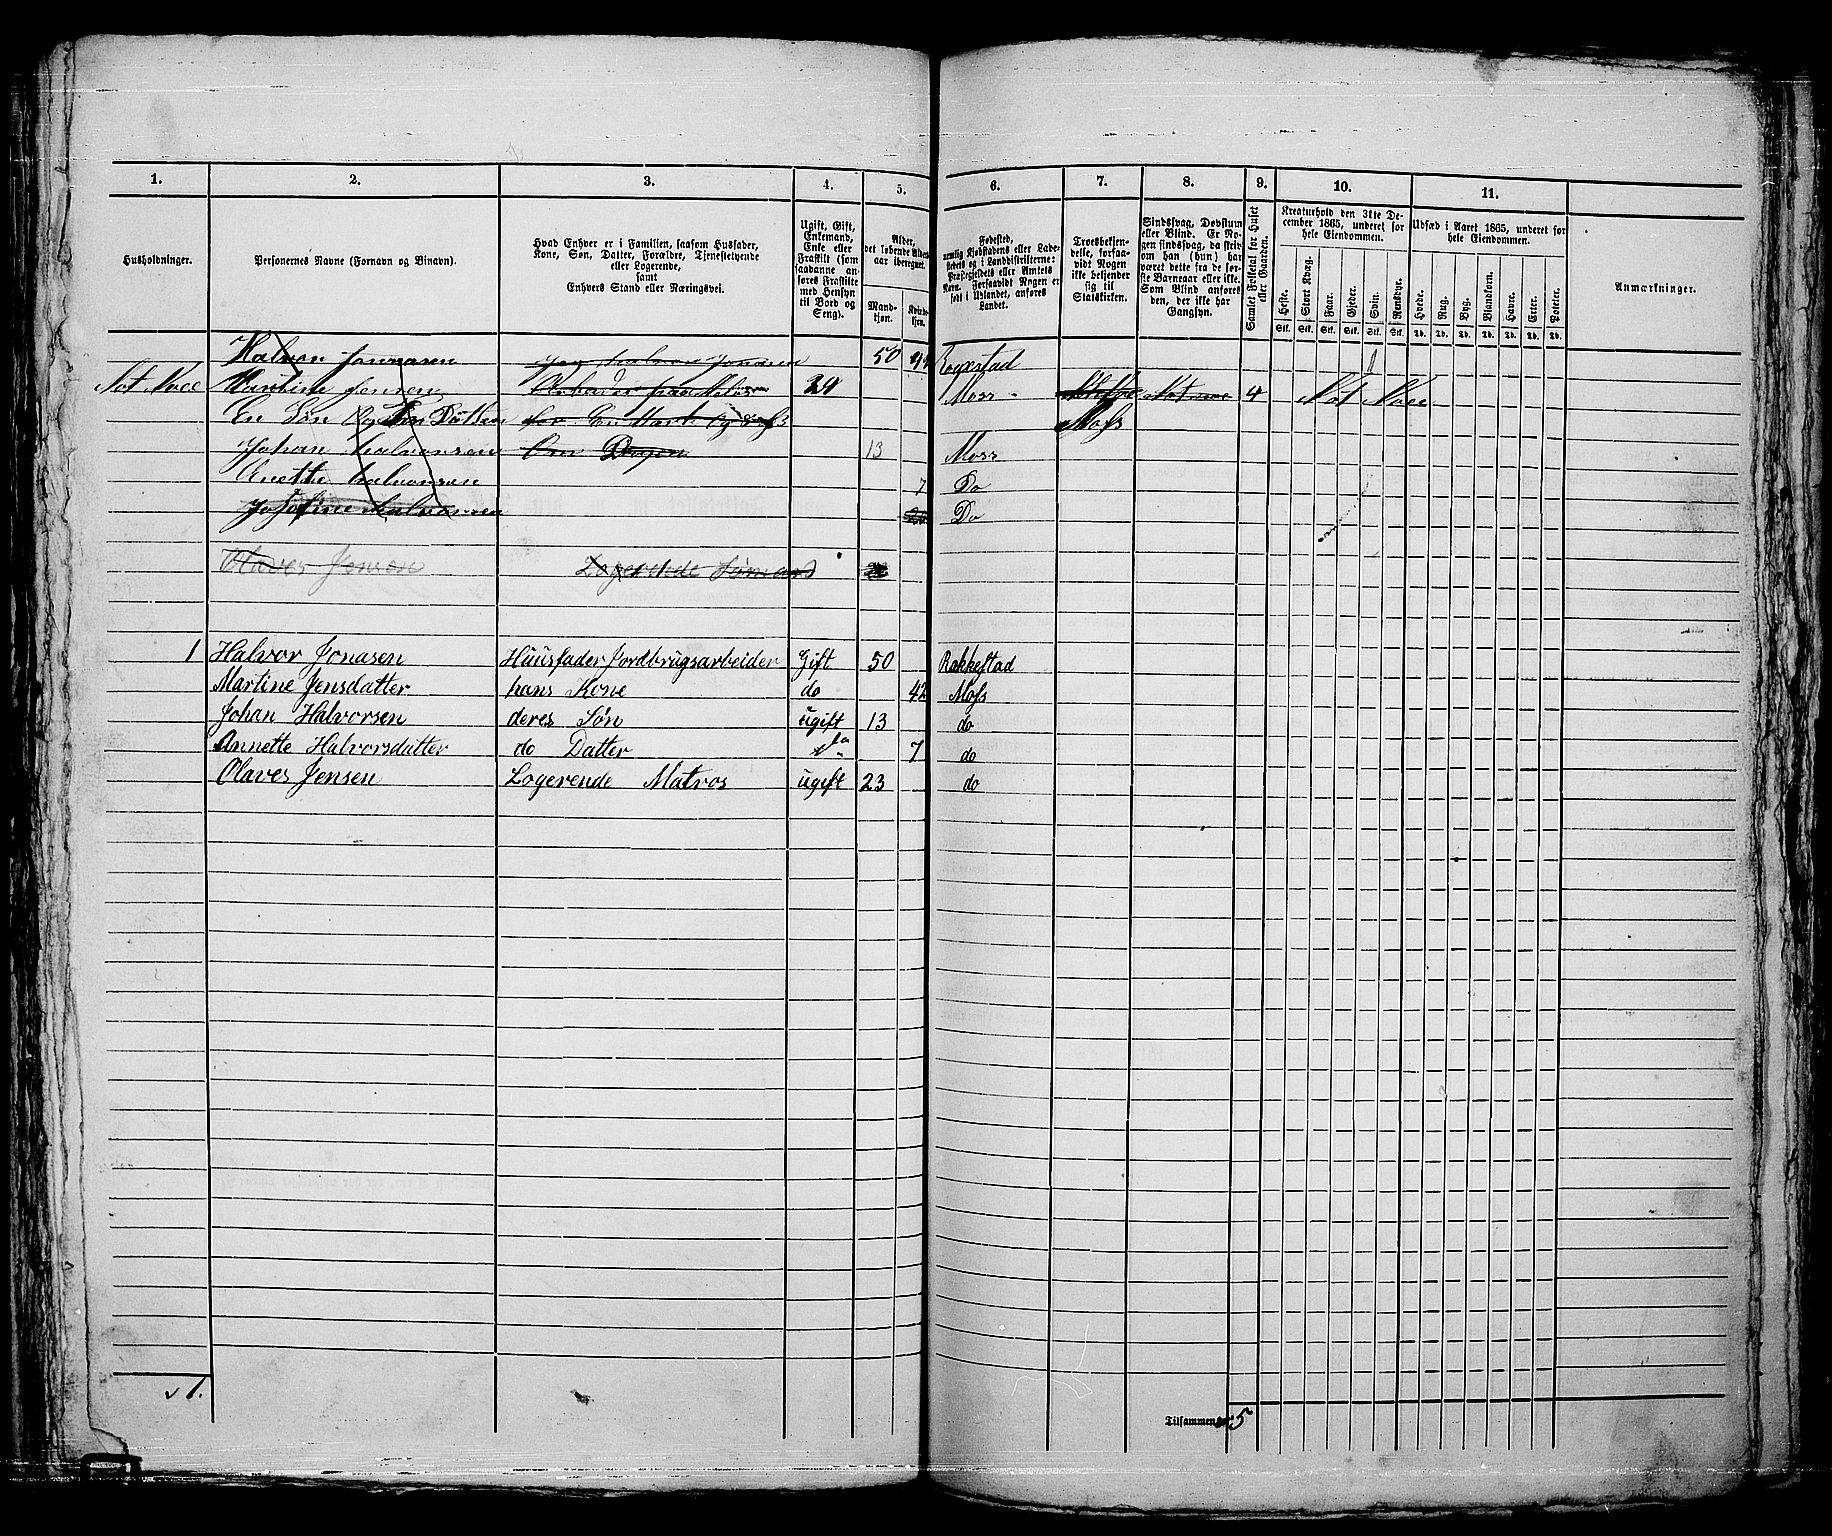 1. 2. 3. 4. 5. 6. 7. 8. 9. 10. 11.
Husholdninger.
Personernes Navne (Fornavn og Binavn).
Hvad Enhver er i Familien, saasom Husfader,
Kone, Søn, Datter, Forældre, Tjenestetyende
eller Logerende,
samt
Enhvers Stand eller Næringsvei.
Ugift, Gift,
Enkemand,
Enke eller
Fraskilt (som
saadanne an-
føres Fraskilte
med Hensyn
til Bord og
Seng).
Alder,
det løbende Alders-
aar iberegnet.
Mand-
kjøn.
Kvinde-
kjøn.
Fødested,
nemlig Kjøbstadens eller Lade-
stedets og i Landdistrikterne:
Præstegjeldets eller Amtets
Navn. Forsaavidt Nogen er
født i Udlandet, anføres
Landet.
Troesbekjen-
delse, forsaa-
vidt Nogen
ikke bekjender
sig til
Statskirken.
Sindssvag, Døvstum
eller Blind. Er No-
gen sindssvag, da skriv
om han (hun) har
været dette fra de før-
ste Barneaar eller ikke.
Som Blind anføres
den, der ikke har
Gangsyn.
Samlet Folketal for Huset
eller Gaarden.
Kreaturhold den 31te De-
cember 1865, underet for
hele Eiendommen.
Heste. Stort Kvæg. Faar. Gjeder. Svin. Rensdyr.
Stk. Stk. Stk. Stk. Stk. Stk.
Udsæd i Aaret 1865, underet for
hele Eiendommen.
Hvede. Rug. Byg. Blandkorn. Havre. Erter. Poteter.
Td. Td. Td. Td. Td. Td. Td.
Anmærkninger.
Halvor Jonnasen 50
Martine Jensen 24 Moss 4
En Søn Moss
Johan Halvorsen 13 Moss
Anette Halvorsen 7 Do
Josefine Halvorsen Do
Olaves Jensen Logerende Sømand
1 Halvor Jonasen Huusfader Jordbrugsarbeider Gift 50 Rakkestad
Martine Jensdatter hans Kone do 42 Moss
Johan Halvorsen deres Søn ugift 13 do
Annette Halvorsdatter do Datter do 7 do
Olaves Jensen Logerende Matros ugift 23 do
1.
Tilsammen 5